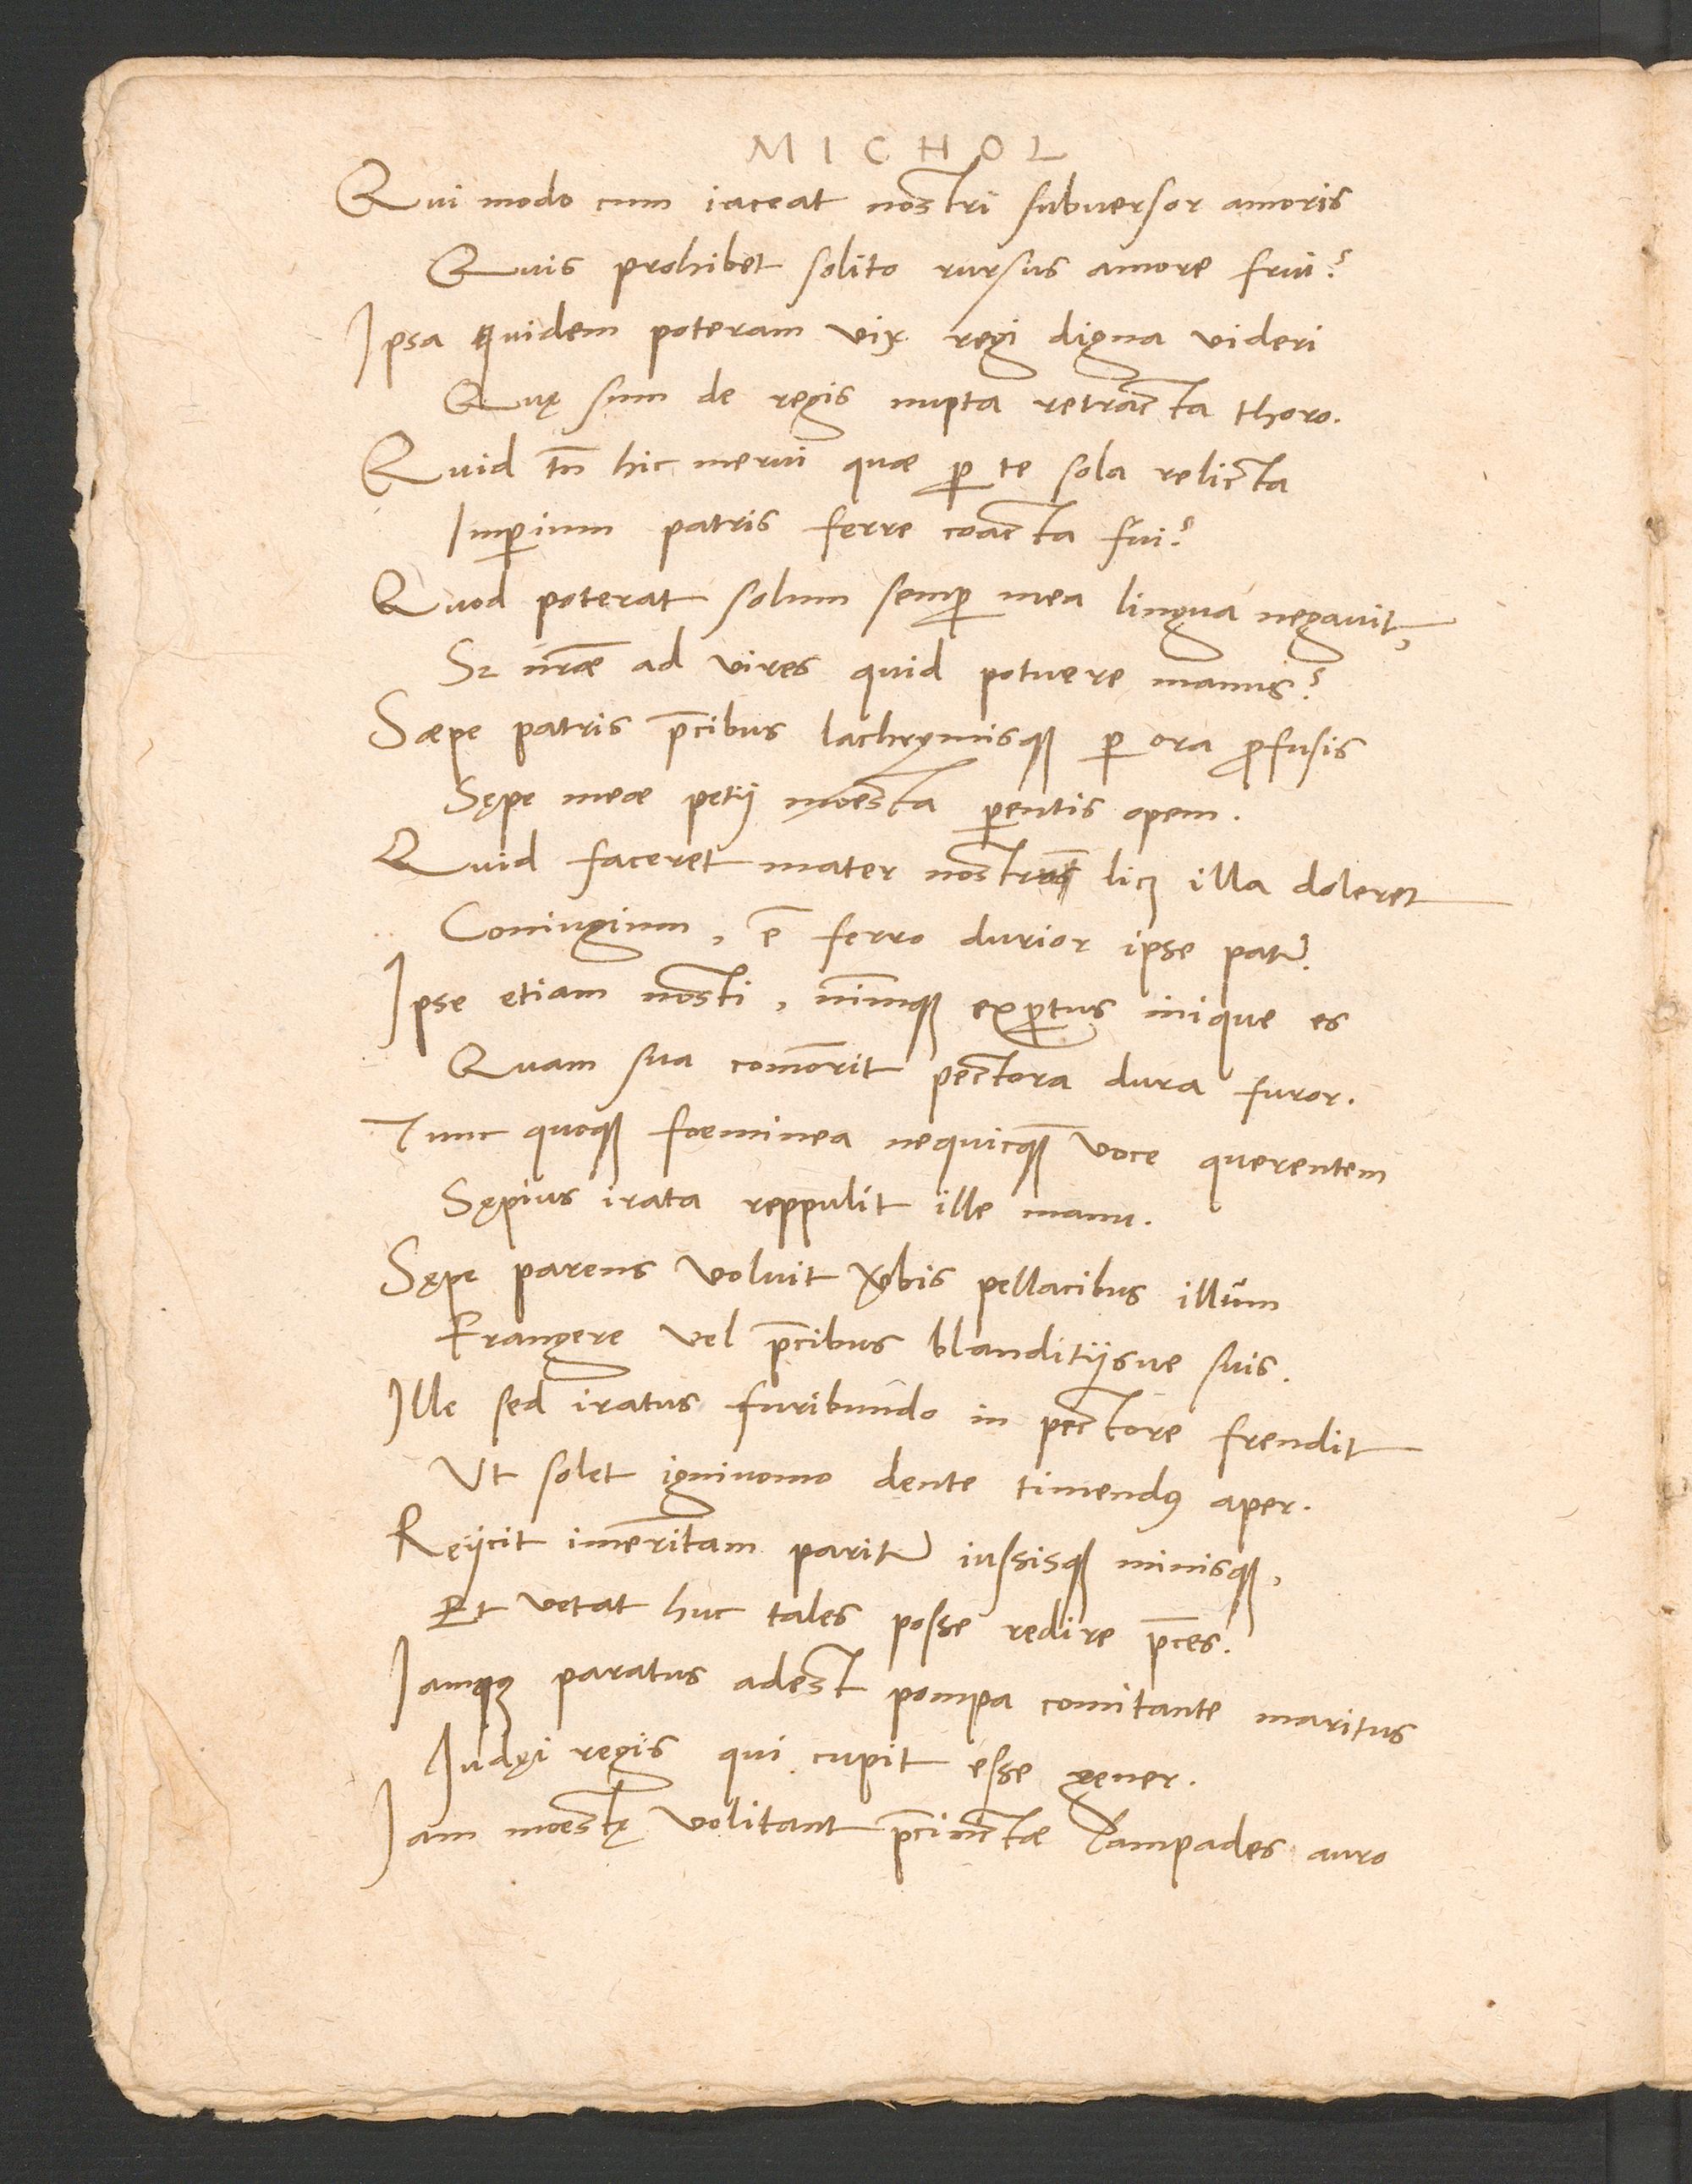 MICHOL
Qui modo cum iaceat nostri subuersor amoris
Quis prohibet solito rursus amore frui?
Ipsa quidem poteram vix regi digna videri
Quę sum de regis nupta retracta thoro.
Quid tn̄ hic merui quae ꝑ te sola relicta
Imꝑium patris ferre coacta fui?
Quod poterat solum semꝑ mea lingua negauit,
Sꝫ nr̄ae ad vires quid potuere manus?
Saepe patris p̄cibus lachrymisqꝫ ꝑ ora ꝓfusis
Sępe meae petij moesta ꝑentis opem.
Quid faceret mater licꝫ illa doleret
Coniugium, ē ferro durior ipse pater.
Ipse etiam nosti, nimiumqꝫ exꝑtus inique es
Quam sua comouerit pectora dura furor.
Tunc quoqꝫ foeminea nequicqꝫ̄ voce querentem
Sępius irata reppulit ille manu.
Sępe parens voluit verbis pellacibus illum
Frangere vel p̄cibus blanditijsue suis.
Ille sed iratus furibundo in pectore frendit
Vt solet igniuomo dente timendꝰ aper.
Reijcit imeritam pariter iussisqꝫ minisqꝫ,
Et vetat huc tales posse redire p̄ces.
Iamqꝫ paratus adest pompa comitante maritus
Iudęi regis qui cupit esse gener.
Iam moestę volitant p̄cinctae lampades auro